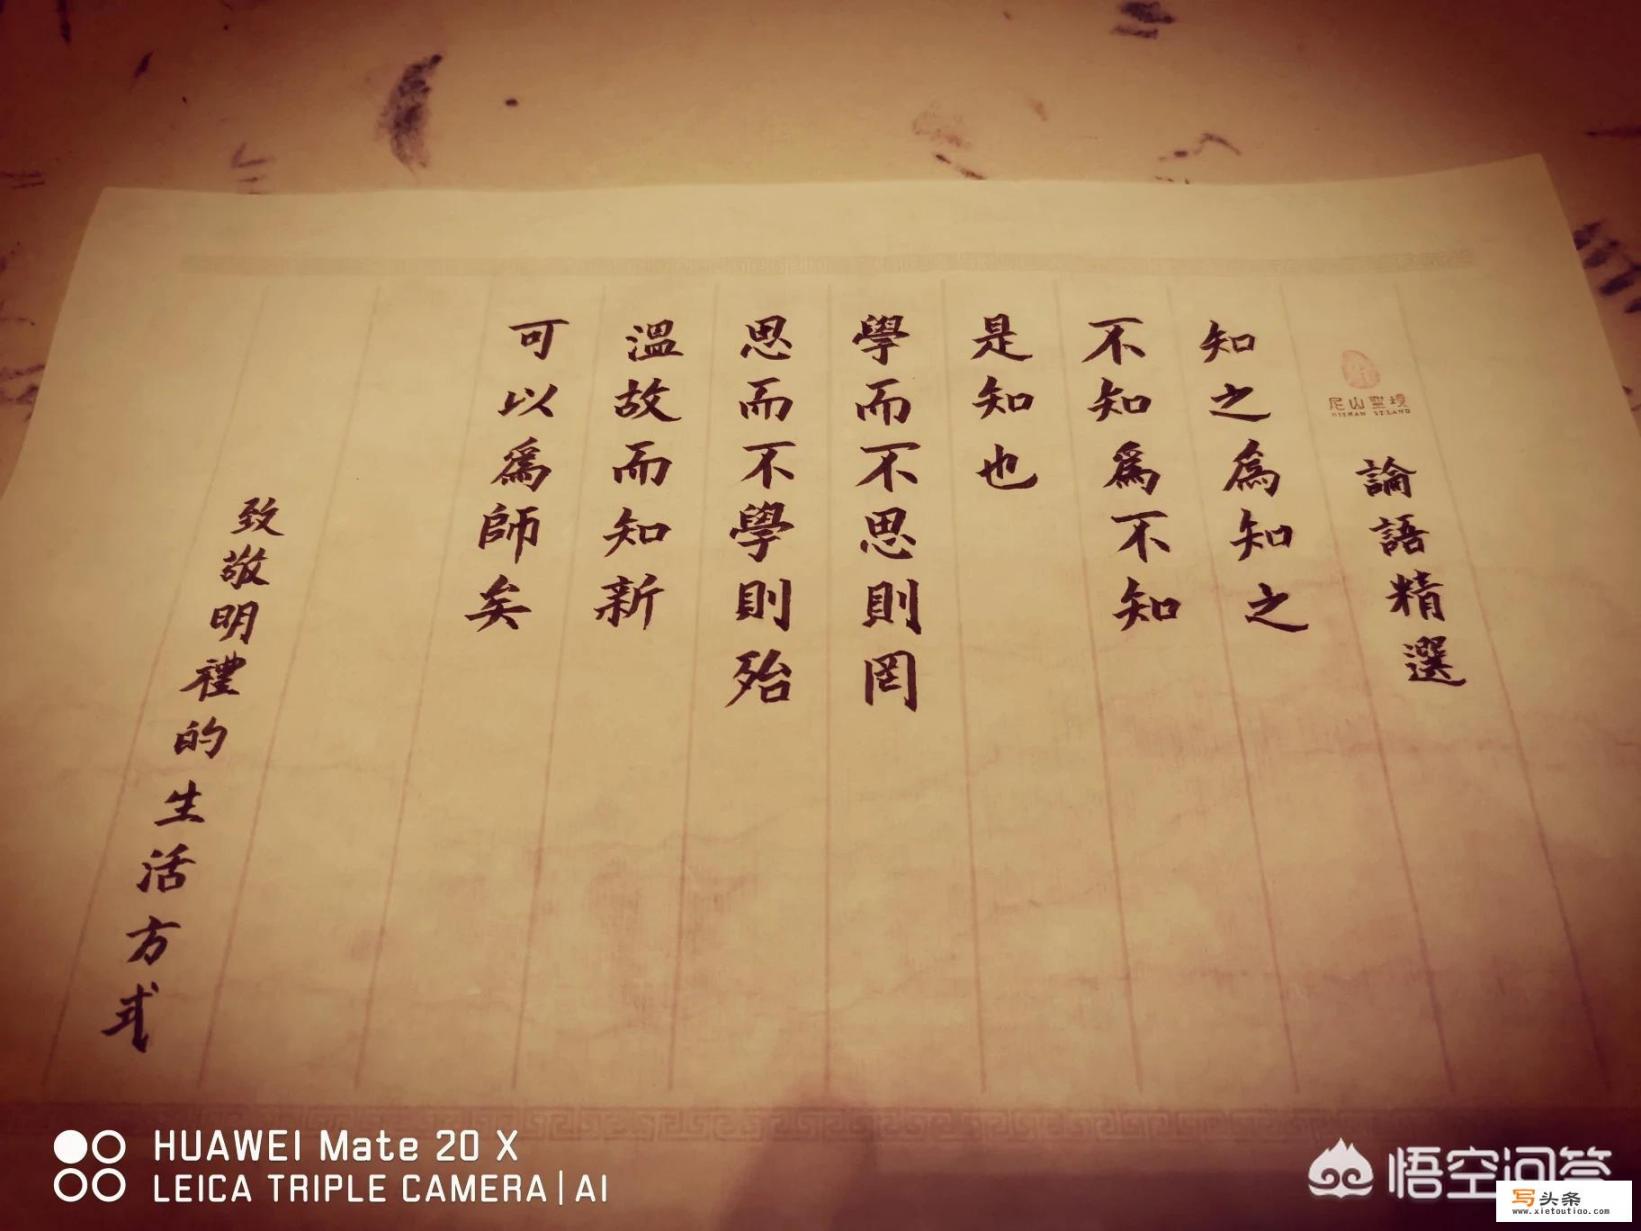 尼山聖境
NISHAN ST.LAND
論語精選
知之為知之
不知為不知
是知也
學而不思則罔
思而不學則殆
溫故而知新
可以為師矣
致敬明禮的生活方式
HUAWEI Mate 20 X
LEICA TRIPLE CAMERA | AI
悟空问答
写头条
www.xietoutiao.com